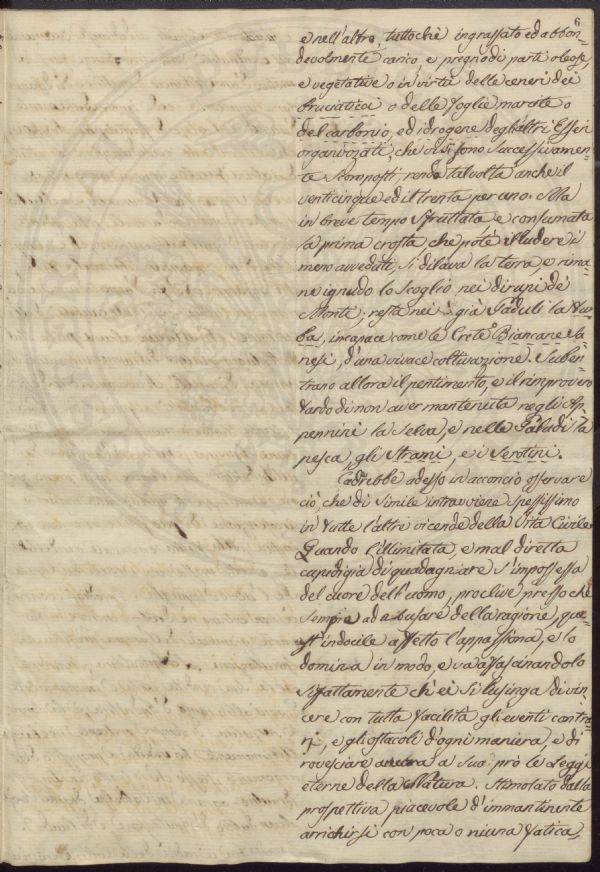 6
e nell'altro, tuttochè ingrassato ed abbon=
devolmente carico, e pregno di parti oleose,
e vegetative o in virtù delle ceneri dei
bruciaticci o delle foglie marcite o
del carbonio, ed idrogene degl'altri Esseri
organizzati, che vi si sono successivamen=
te scomposti, rende talvolta anche il
venticinque ed il trenta per uno. Ma
in breve tempo sfruttata e consumata
la prima crosta che potè illudere i
meno avveduti, si dilava la terra e rima=
ne ignudo lo Scoglio nei dirupi de'
Monti; resta nei già Paduli la
incapace come le Crete Biancane Sa=
nesi, d'una vivace coltivazione. Suben=
trano allora il pentimento, e il rimprovero
tardo di non aver mantenuta negli Ap=
pennini la Selva, e nelle Paludi la
pesca, gli Strami, e i Serotini.
Cadrebbe adesso in acconcio osservare
ciò, che di simile intravviene spessissimo
in tutte l'altre vicende della Vita Civile.
Quando l'illimitata, e mal diretta
cupidigia di guadagniare s'impossessa
del cuore dell'uomo, proclive presso che
sempre ad abusare della ragione, que=
st'indocile affetto l'appassiona, e lo
domina in modo, e va assassinandolo
sifattamente ch'ei si lusinga di vin=
cere con tutta facilità gli eventi contra=
rj, e gli ostacoli d'ogni maniera, e di
rovesciare ancora a suo prò le Leggi
eterne della Natura. Stimolato dalla
prospettiva piacevole d'immantinente
arrichirsi con poca o niuna fatica=